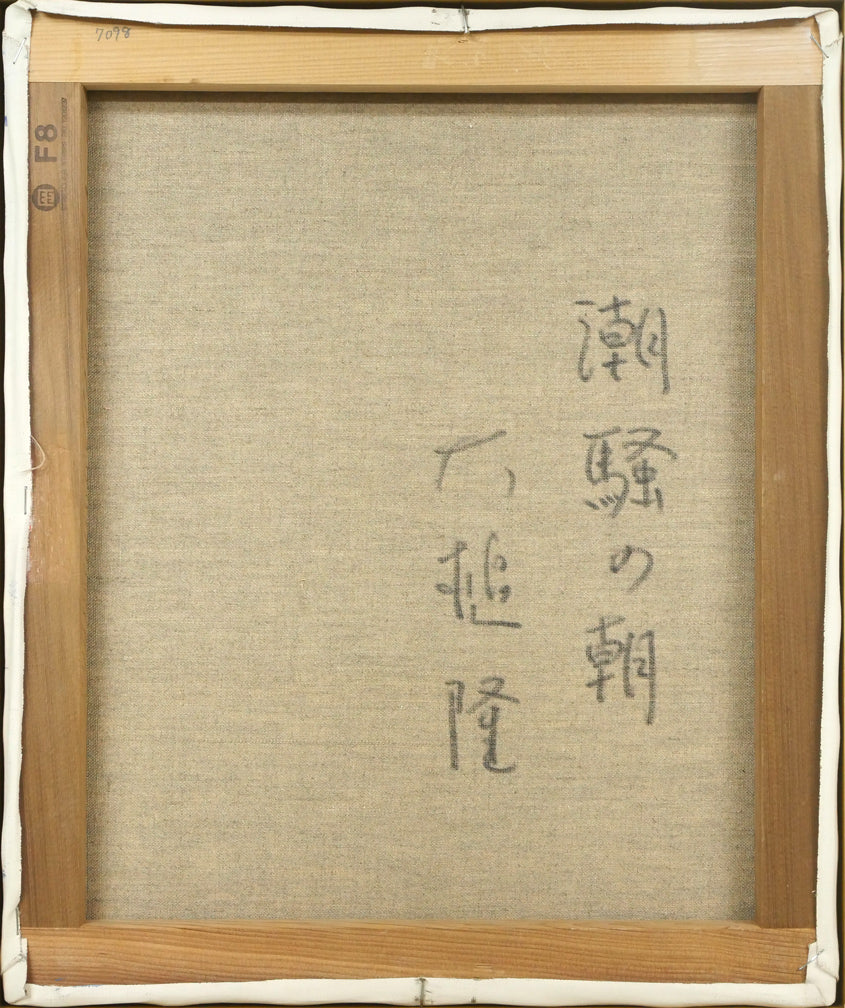 7098
F8
潮騒の朝
大槌隆